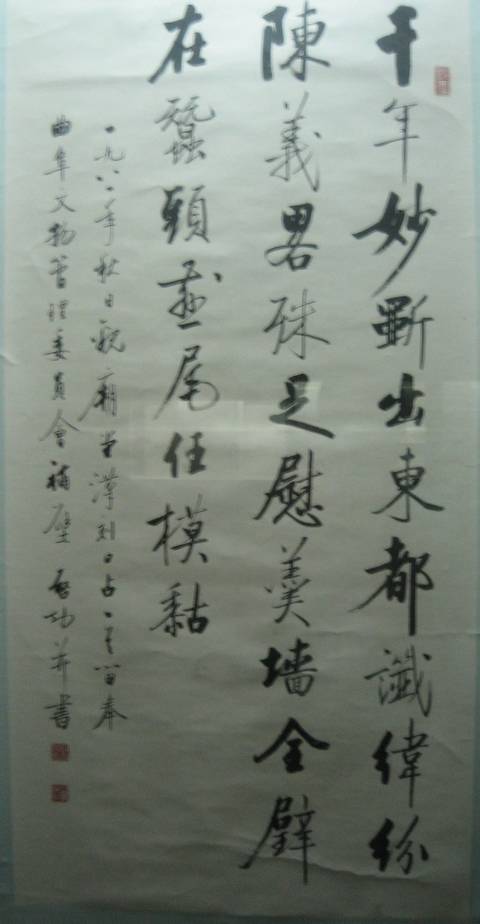 千年妙斲出東都讖緯紛
陳義畧殊足慰羹墻全璧
在蠶頭燕尾任模
一九八二年秋日觀廟堂漢刻口占一首留奉
曲阜文物管理委員會補壁 啓功並書